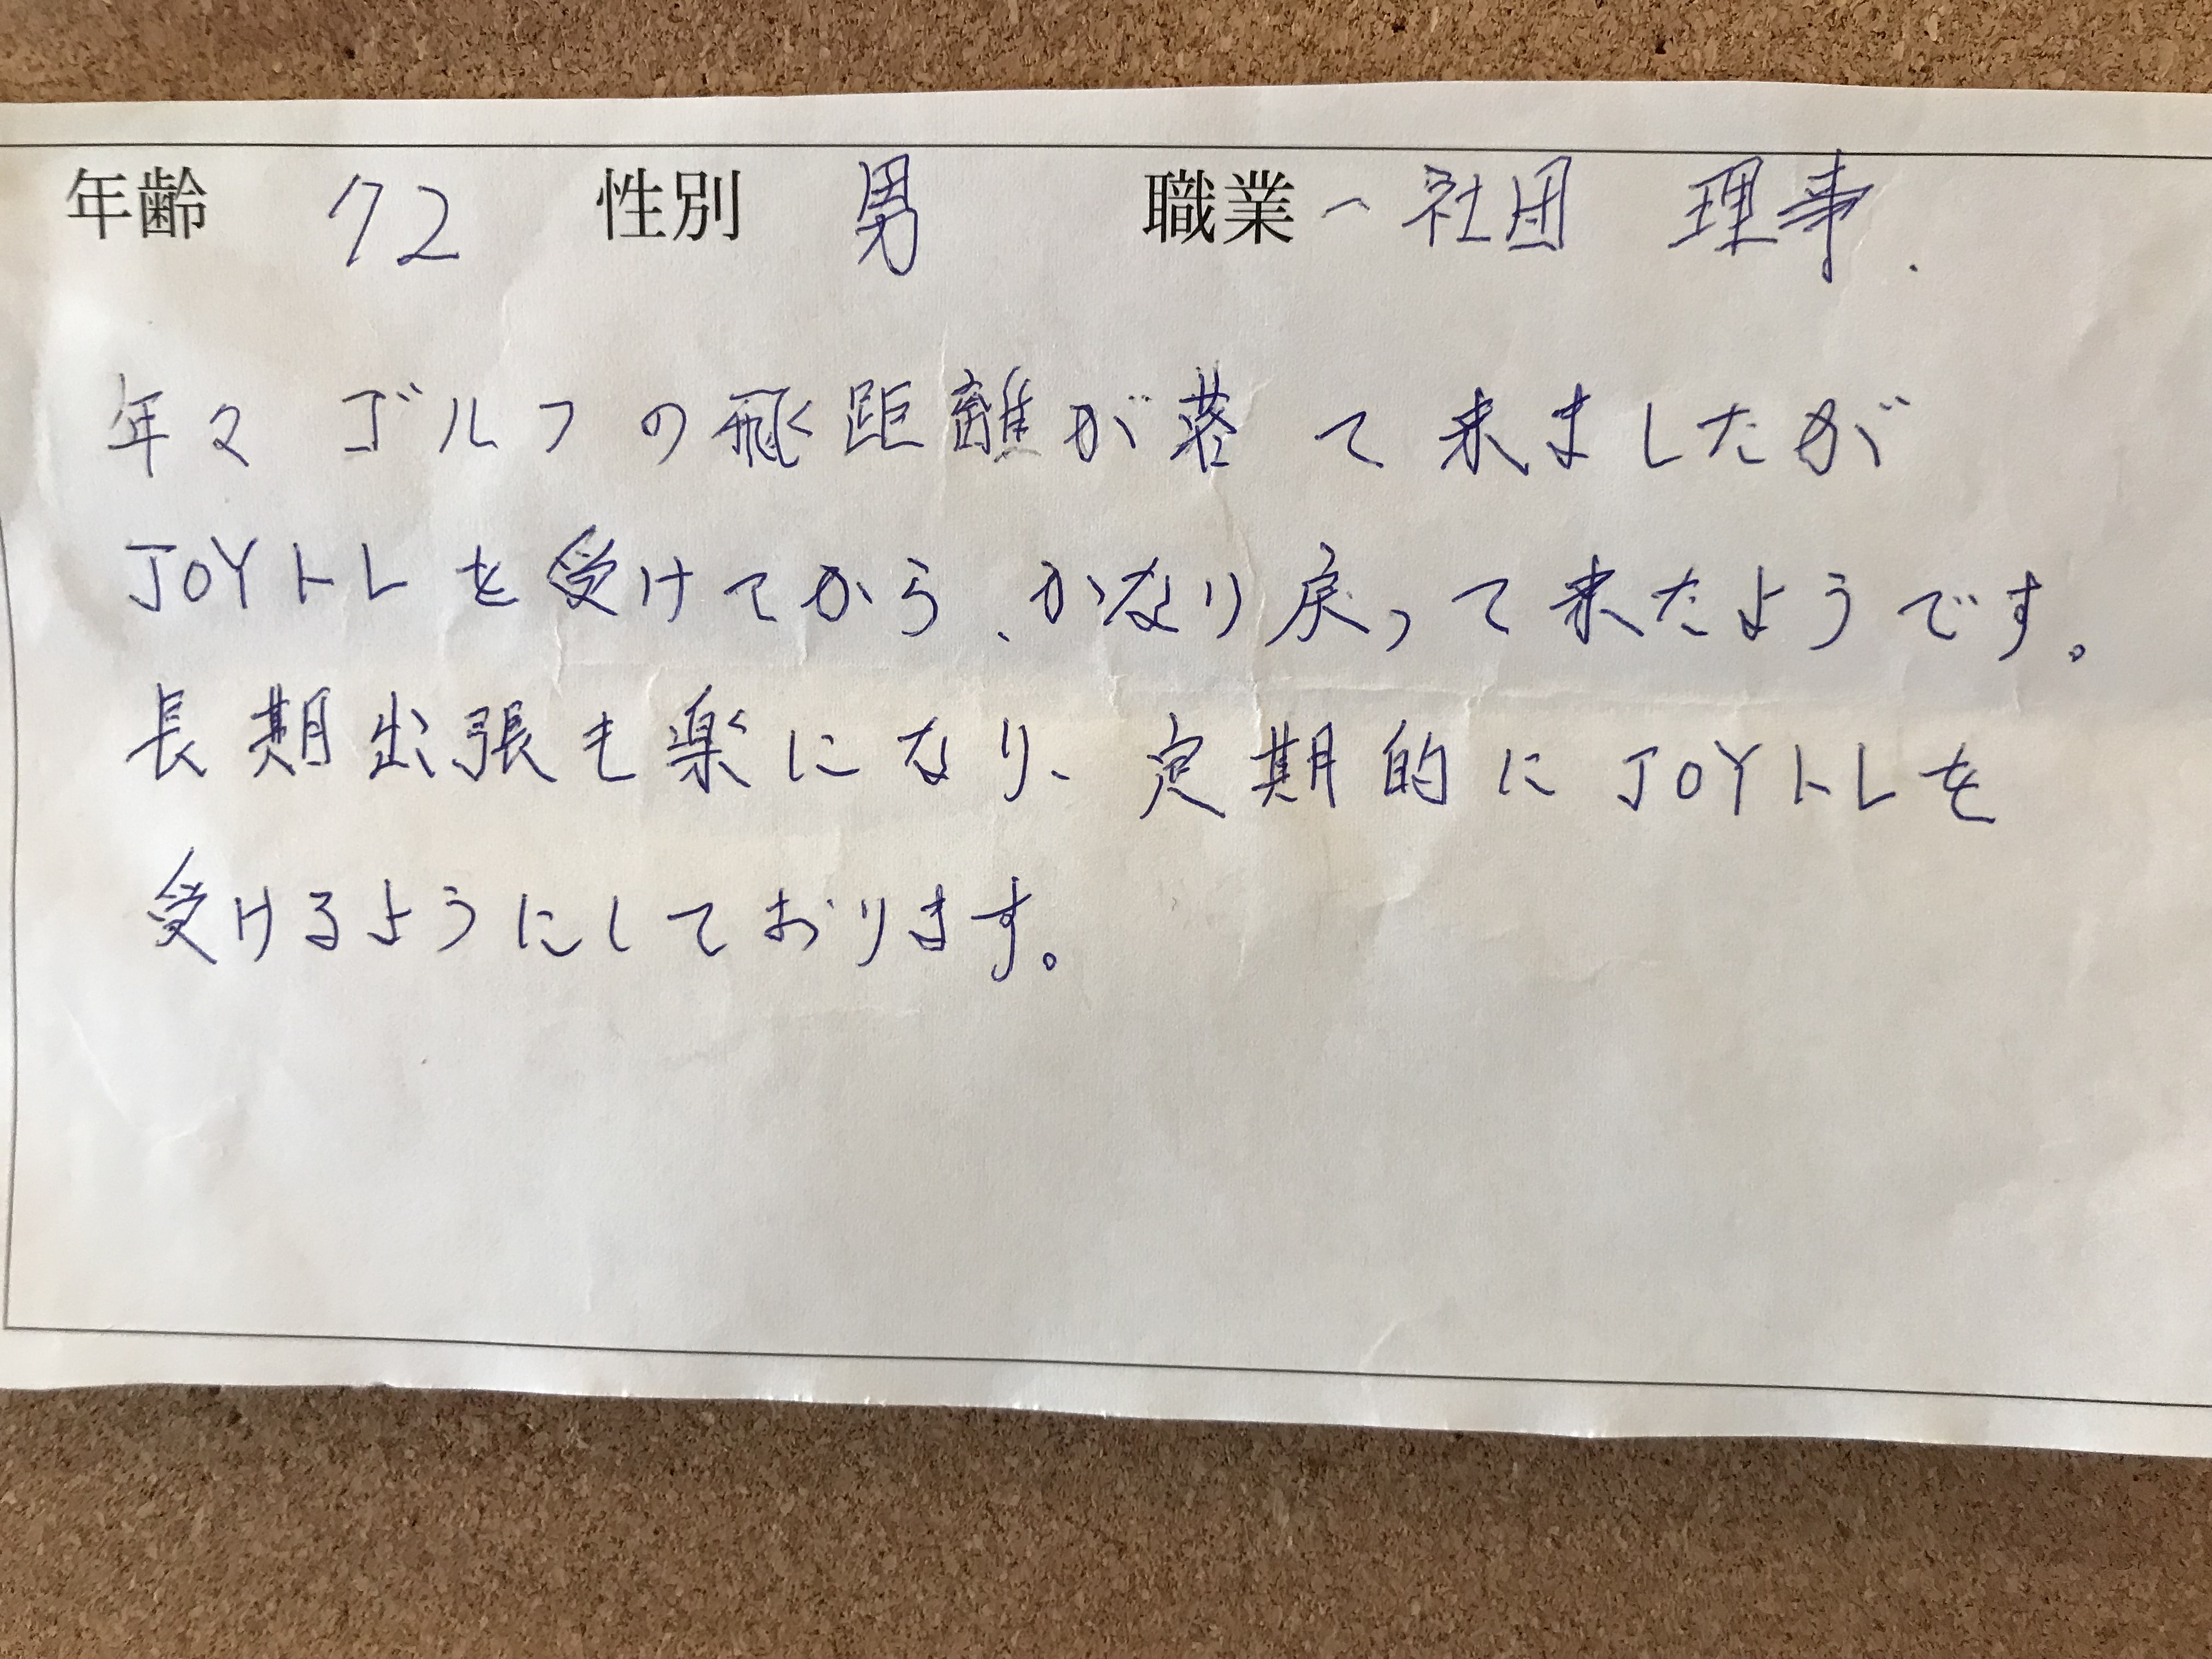 年齢 72 性別 男 職業 一社団 理事.
年々 ゴルフの飛距離が落て来ましたが
JOYトレを受けてから、かなり戻って来たようです。
長期出張も楽になり、定期的にJOYトレを
受けるようにしております。